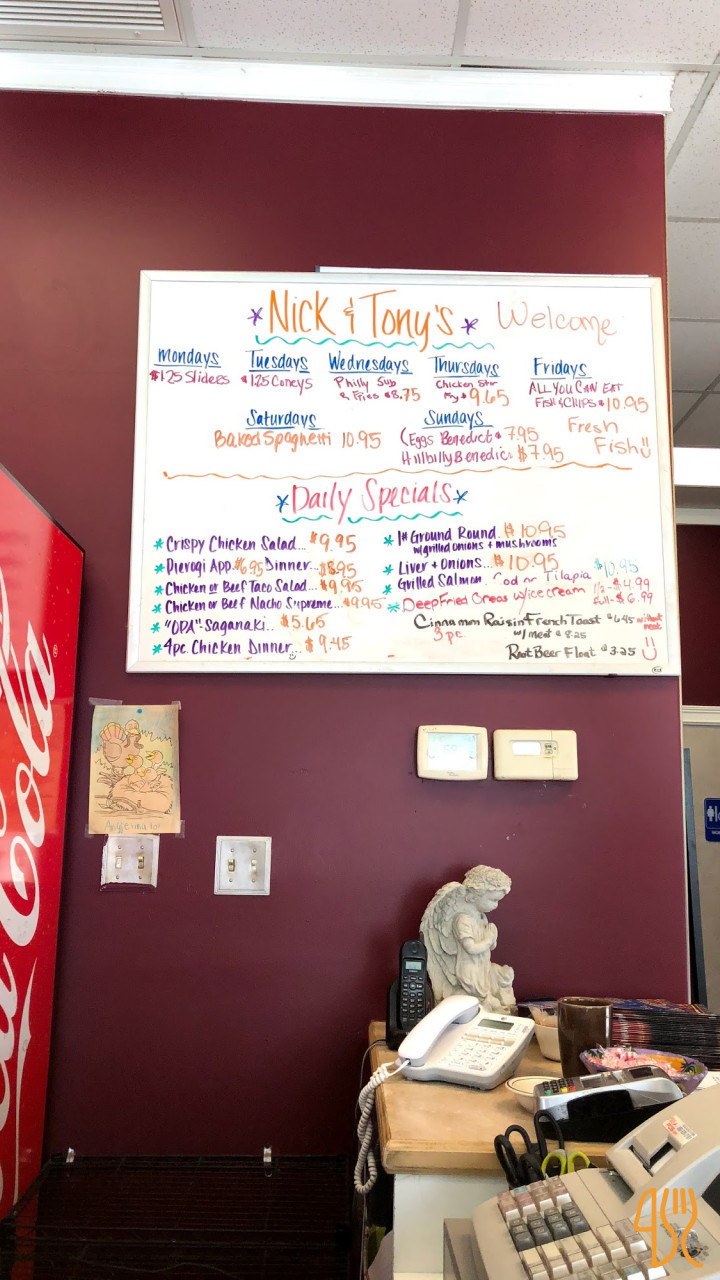 *Nick & Tony's* Welcome
Mondays
$1.25 Sliders
Tuesdays
$1.25 Coneys
Wednesdays
Philly Sub
& Fries $8.75
Thursdays
Chicken Stir
Fry $9.65
Fridays
ALL YOU CAN EAT
FISH & CHIPS $10.95
Saturdays
Baked Spaghetti 10.95
Sundays
(Eggs Benedict $7.95
Hillbilly Benedict $7.95
Fresh
Fish
*Daily Specials*
*Crispy Chicken Salad... $9.95
*Pierogi App. $6.95 Dinner... $8.95
*Chicken or Beef Taco Salad... $9.95
*Chicken or Beef Nacho Supreme... $9.95
*"OPA" Saganaki.. $5.65
*4pc. Chicken Dinner... $9.45
*1# Ground Round. $10.95
w/grilled onions + mushrooms
*Liver + Onions... $10.95
*Grilled Salmon. Cod or Tilapia $10.95
*Deep Fried Oreos w/ice cream 1/2-$4.99
full-$6.99
Cinnamon Raisin French Toast $6.95 without meat
3 pc. w/ meat $8.25
Root Beer Float $3.25
Coca-Cola
Angelina